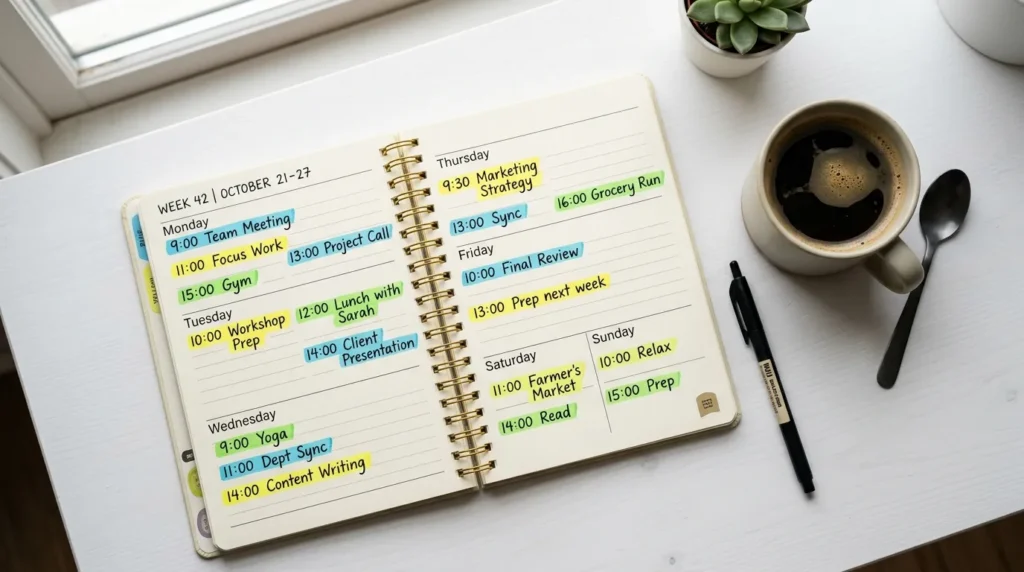 WEEK 42 | OCTOBER 21-27
Monday
9:00 Team Meeting
11:00 Focus Work
13:00 Project Call
15:00 Gym
Tuesday
10:00 Workshop
Prep
12:00 Lunch with
Sarah
14:00 Client
Presentation
Wednesday
9:00 Yoga
11:00 Dept Sync
14:00 Content Writing
Thursday
9:30 Marketing
Strategy
13:00 Sync
16:00 Grocery Run
Friday
10:00 Final Review
13:00 Prep next week
Saturday
11:00 Farmer's
Market
14:00 Read
Sunday
10:00 Relax
15:00 Prep